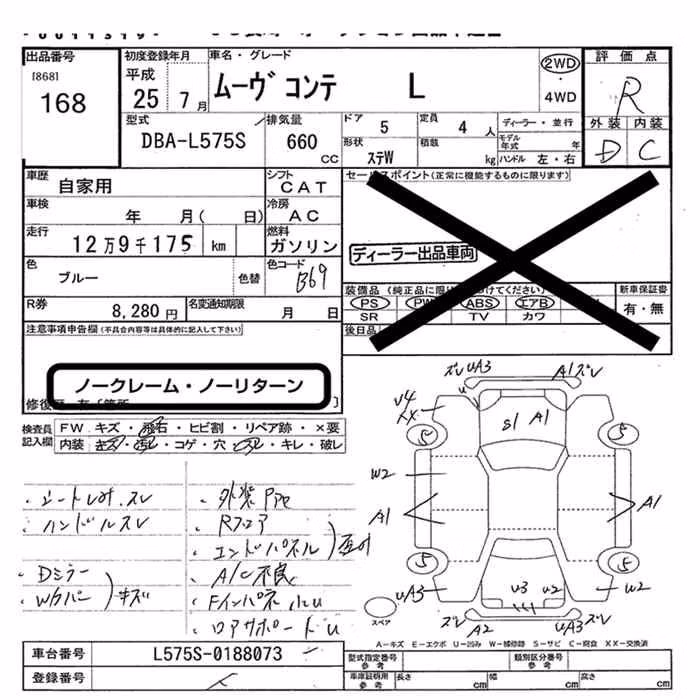 出品番号
[868]
168
初度登録年月
平成
25 7 月
車名・グレード
ムーヴ コンテ L
2WD
・
4WD
評価点
R
外装 内装
D C
型式
DBA-L575S
排気量
660 CC
ドア 5
定員 4 人
ディーラー・並行
モデル年式 年
形状 ステW
積載 kg
ハンドル 左・右
車歴
自家用
シフト
CAT
車検
年 月( 日)
冷房
AC
走行
12万9千175 km
燃料
ガソリン
色
ブルー
色替
色コード
B69
R券
8,280 円
名変通知期限
月 日
セールスポイント(正常に機能するものに限ります)
ディーラー出品車両
装備品
PS PW ABS エアB
SR TV カワ
新車保証書
有・無
後日品
注意事項申告欄(不具合内容等は具体的に記入して下さい)
ノークレーム・ノーリターン
検査員記入欄
FW キズ・飛石・ヒビ割・リペア跡・×要
内装 キズ・汚レ・コゲ・穴・スレ・キレ・破レ
・ハンドルスレ
・Dミラー
キズ
・外装
・Rフロア
・エンドパネル
・A/C不良
・リアサポートU
ズレ UA3
A1 ズレ
U4
XX
U
S1 A1
5
5
W2
A1
A1
5
5
UA3
U3 U2
W2
ズレ
A2
UA3
ズレ
スペア
A-キズ E-エクボ U-凹み W-補修跡 S-サビ C-腐食 XX-交換済
車台番号
L575S-0188073
登録番号
型式指定番号
参考
類別区分番号
参考
車庫証明用
参考
長さ cm
幅 cm
高さ cm